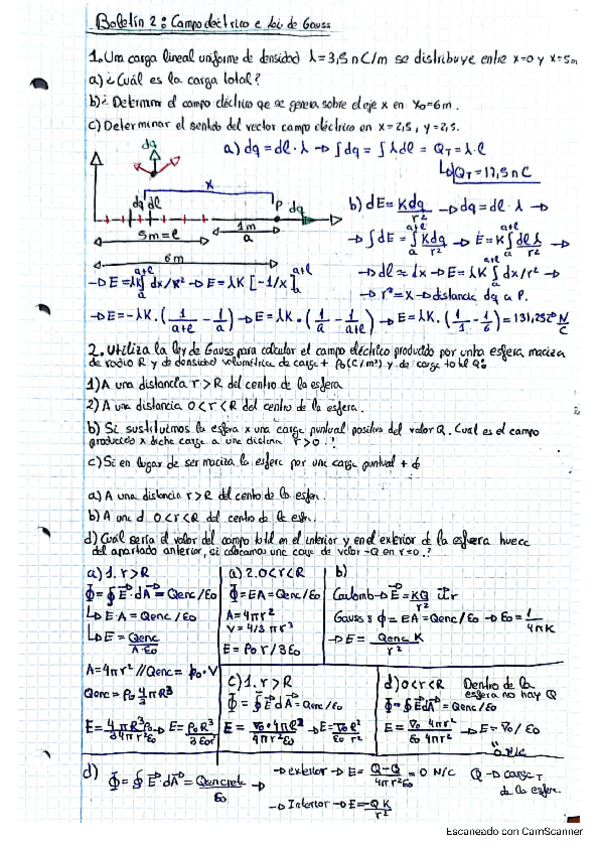 Boletín 2: Campo eléctrico e Lei de Gauss
1. Una carga lineal uniforme de densidad λ=3,5 nC/m se distribuye entre x=0 y x=5m
a) ¿Cuál es la carga total?
b) ¿ Determinar el campo eléctrico qe se genera sobre el eje x en x₀=6m.
c) Determinar el sentido del vector campo eléctrico en x=2,5, y=2,5.
dq
a) dq = dl·λ → ∫dq = ∫λdl = Q_T = λ·l
↳ Q_T = 17,5 nC
x
dq dl
P
dq
5m=l
1m
a
6m
b) dE = Kdq/r² → dq=dl·λ →
→ ∫dE = ∫ₐᵃ⁺ˡ Kdq/r² → E=K∫ₐᵃ⁺ˡ dl λ/r² →
→ dl = dx → E=λK ∫ₐᵃ⁺ˡ dx/r² →
→ E=λK∫ₐᵃ⁺ˡ dx/x² → E=λK [-1/x]ₐᵃ⁺ˡ
→ r²=x → distancia dq a P.
→ E=-λK·(1/(a+l) - 1/a) → E=λK·(1/a - 1/(a+l)) → E=λK·(1/1 - 1/6) = 131,25 N/C
2. Utiliza la ley de Gauss para calcular el campo eléctrico producido por unha esfera maciza
de radio R y de densidad volumétrica de carga + ρ₀(C/m³) y de carga total Q:
1) A una distancia r>R del centro de la esfera
2) A una distancia 0<r<R del centro de la esfera.
b) Si sustituimos la esfera x una carga puntual positiva del valor Q. Cual es el campo
producido x dicha carga a una distancia r>0.?
c) Si en lugar de ser maciza la esfera por una carga puntual +
a) A una distancia r>R del centro de la esfera.
b) A una d 0<r<R del centro de la esfera.
d) Cuál sería el valor del campo total en el interior y en el exterior de la esfera hueca
del apartado anterior, si colocamos una carga de valor -Q en r=0.?
a) 1. r>R
Φ=∮E⃗·dA⃗=Qenc/ε₀
↳ E·A = Qenc/ε₀
↳ E = Qenc/A·ε₀
A=4πr² // Qenc = ρ₀·V
Qenc = ρ₀ 4/3 πR³
E = 4πR³ρ₀/3·4πr²ε₀ → E = ρ₀R³/3ε₀r²
a) 2. 0<r<R
Φ=EA=Qenc/ε₀
A=4πr²
V=4/3 πr³
E = ρ₀r/3ε₀
b)
Coulomb → E⃗ = KQ/r² u⃗r
Gauss: Φ = EA=Qenc/ε₀ → ε₀=1/4πK
→ E = Qenc K/r²
c) 1. r>R
Φ=∮E⃗dA⃗=Qenc/ε₀
E = σ₀·4πR²/4πr²ε₀ → E=σ₀R²/ε₀r²
d) 0<r<R Dentro de la
esfera no hay Q
Φ=∮EdA=Qenc/ε₀
E = σ₀ 4πr²/ε₀ 4πr² → E=σ₀/ε₀
0 N/C
d) Φ=∮E⃗·dA⃗=Qencret/ε₀ →
→ exterior → E = Q-Q/4πr²ε₀ = 0 N/C Q → carga
de la esfera.
→ Interior → E=-QK/r²
Escaneado con CamScanner